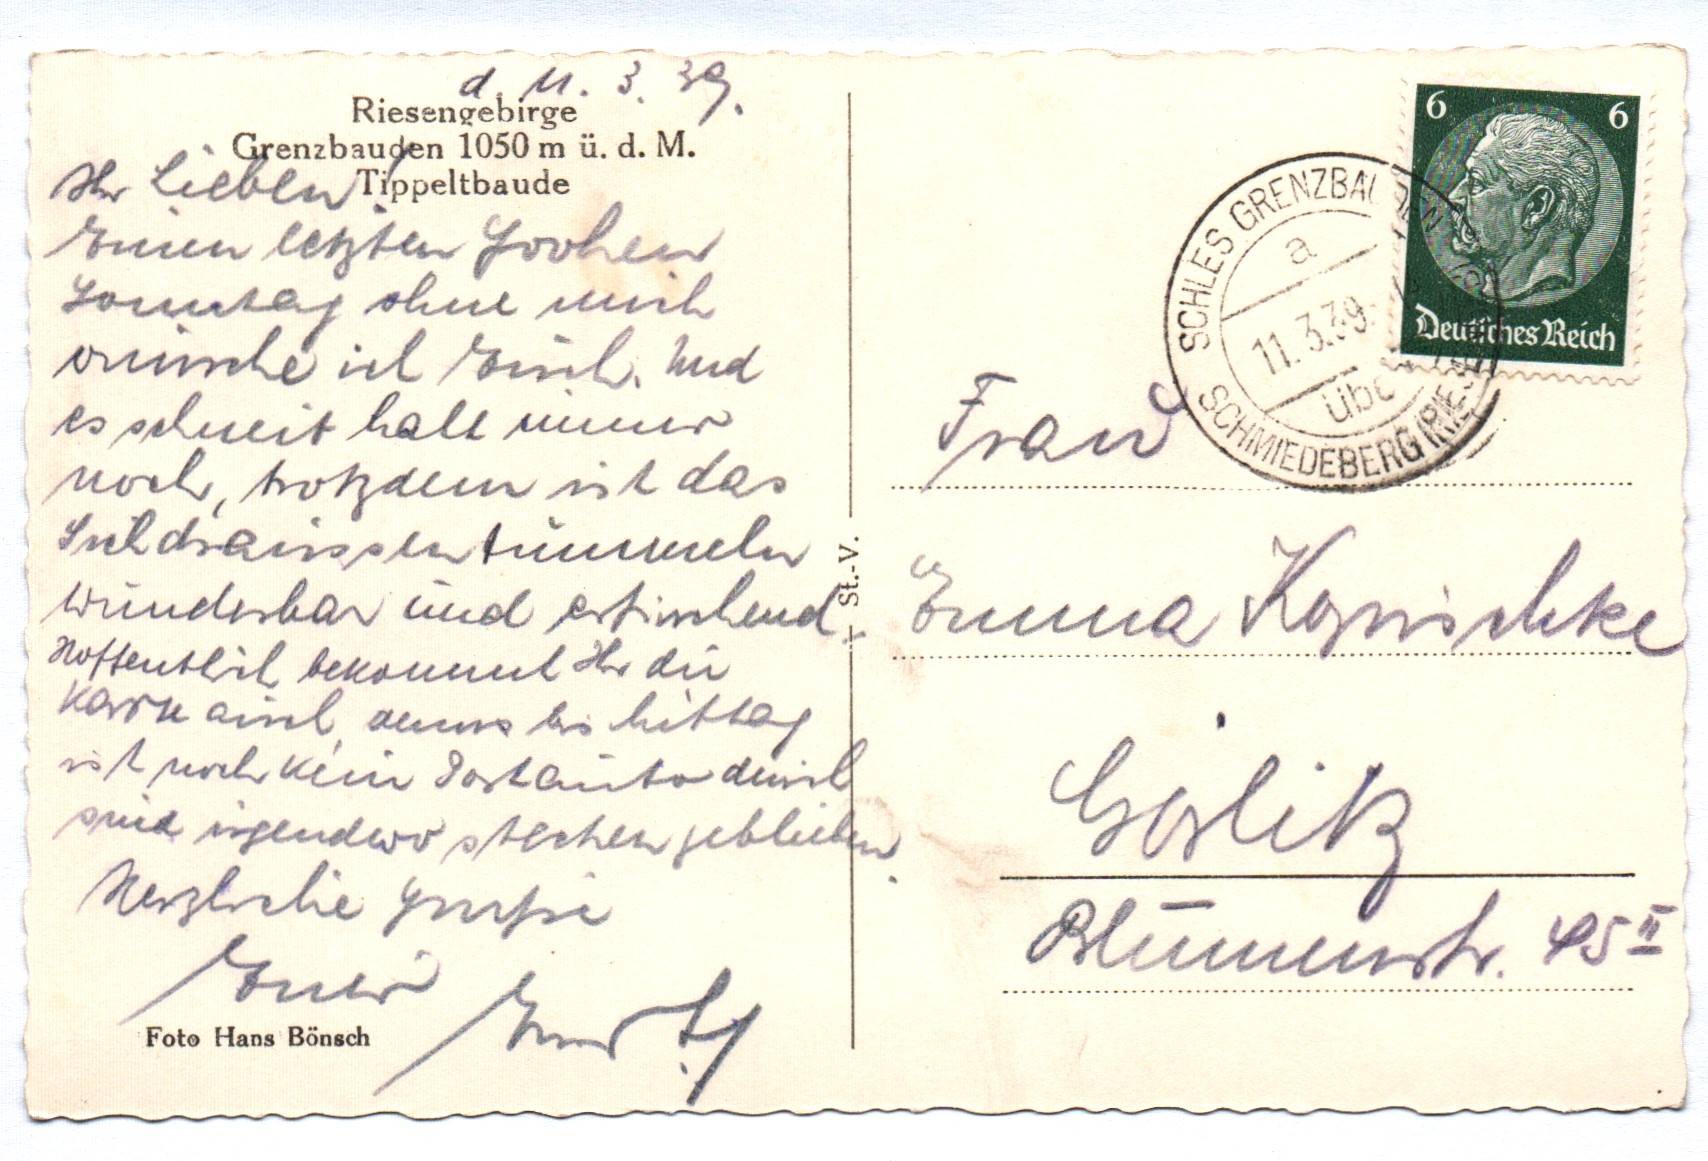 d. 11. 3. 39.
Riesengebirge
Grenzbauden 1050 m ü. d. M.
Tippeltbaude
Ihr Lieben!
Einen letzten frohen
Sonntag ohne mich
wünsche ich Euch. Und
es schneit halt immer
noch, trotzdem ist das
Sichdraussentummeln
wunderbar und erfrischend.
Hoffentlich bekommt Ihr die
Karte auch, denn bis Mittag
ist noch kein Postauto durch
sind irgendwo stecken geblieben.
Herzliche Grüße
Euer
Foto Hans Bönsch
St.-V.
6 6
Deutsches Reich
SCHLES GRENZBAUDEN
a
11.3.39
über
SCHMIEDEBERG (RIESENGEB
Frau
Emma Kopischke
Görlitz
Blumenstr. 45 II